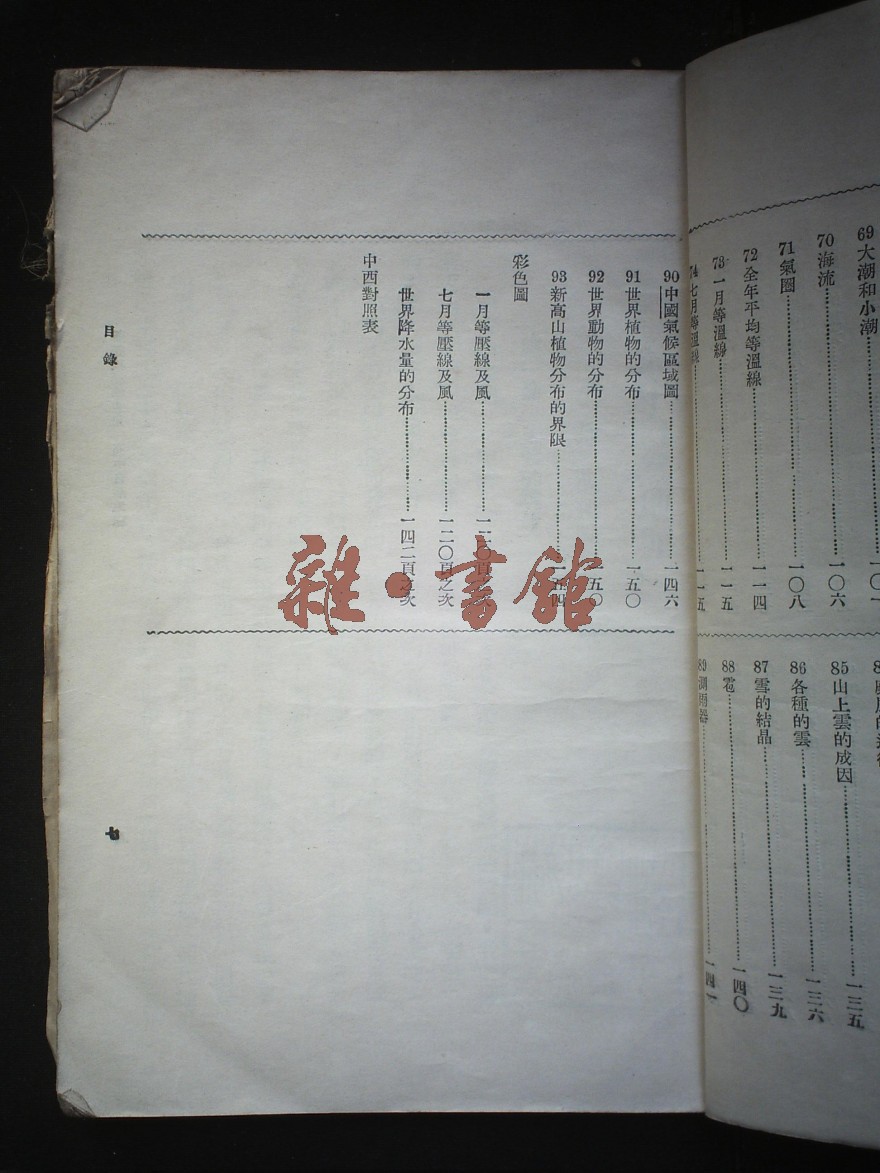 69 大潮和小潮……一〇一
70 海流……一〇六
71 氣圈……一〇八
72 全年平均等溫線……一一四
73 一月等溫線……一一五
74 七月等溫線……一一五
85 山上雲的成因……一三五
86 各種的雲……一三六
87 雪的結晶……一三九
88 雹……一四〇
89 測雨器……一四一
90 中國氣候區域圖……一四六
91 世界植物的分布……一五〇
92 世界動物的分布……一五〇
93 新高山植物分布的界限……一五四
彩色圖
一月等壓線及風……一二〇頁之次
七月等壓線及風……一二〇頁之次
世界降水量的分布……一四二頁之次
中西對照表
目錄
七
雜·書館